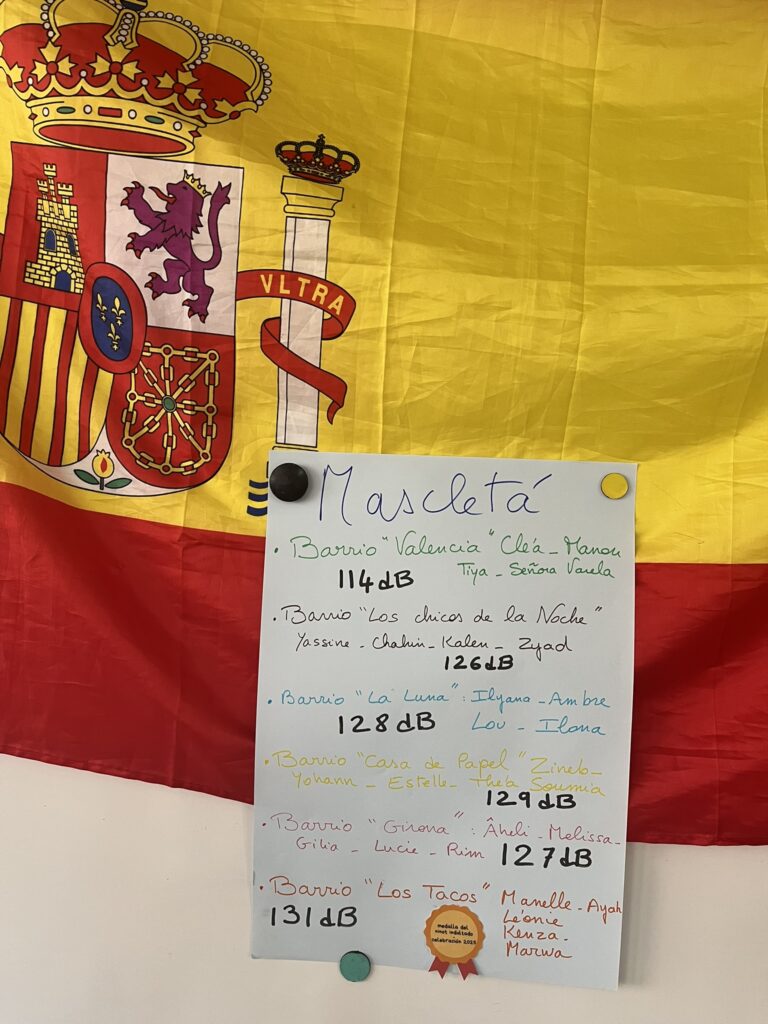 VLTRA
Mascletá
• Barrio "Valencia" Cléa - Manon
Tiya - Señora Varela
114 dB
• Barrio "Los chicos de la Noche"
Yassine - Chahin - Kalen - Zyad
126 dB
• Barrio "La Luna" : Ilyana - Ambre
128 dB Lou - Ilona
• Barrio "Casa de Papel" Zineb -
Yohann - Estelle - Théa Soumia
129 dB
• Barrio "Girona" : Âheli - Melissa -
Gilia - Lucie - Rim 127 dB
• Barrio "Los Tacos" Manelle - Ayah
131 dB Léonie
Kenza -
Marwa
medalla del
ninot indultado
-
celebración 2025